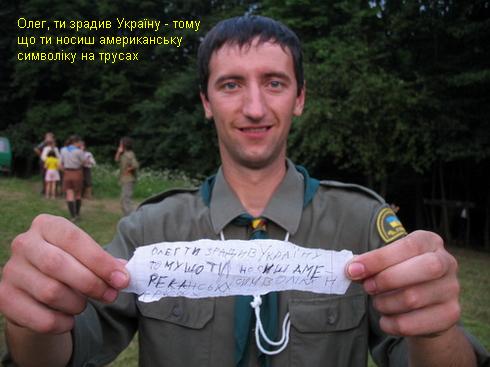 Олег, ти зрадив Україну - тому
що ти носиш американську
символіку на трусах
ОЛЕГ ТИ ЗРАДИВ УКРАЇНУ
ТОМУ ЩО ТИ НОСИШ АМЕ-
РИКАНСЬКУ СИМВОЛІКУ Н